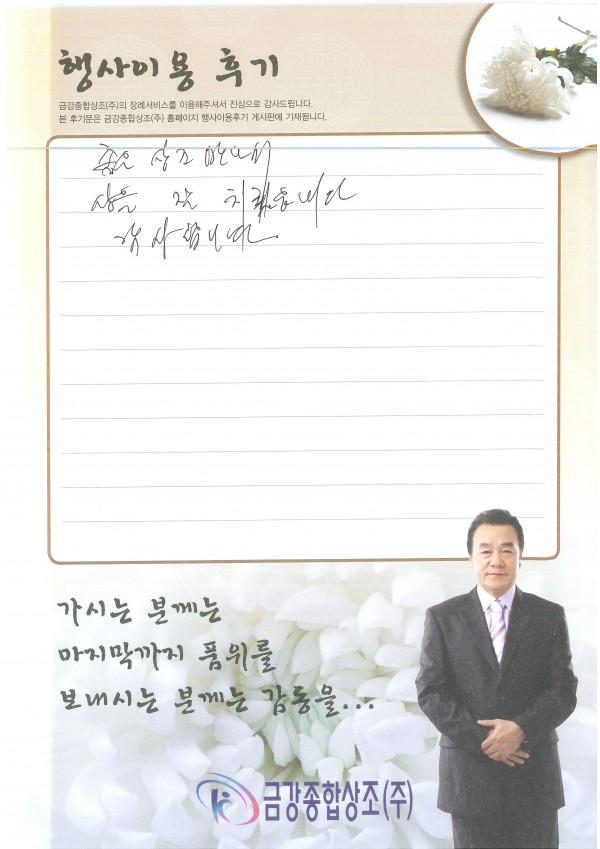 행사이용 후기
금강종합상조(주)의 장례서비스를 이용해주셔서 진심으로 감사드립니다.
본 후기문은 금강종합상조(주) 홈페이지 행사이용후기 게시판에 기재됩니다.
좋은 상조 만나서
상을 잘 치렀습니다
감사합니다.
가시는 분께는
마지막까지 품위를
보내시는 분께는 감동을...
금강종합상조(주)